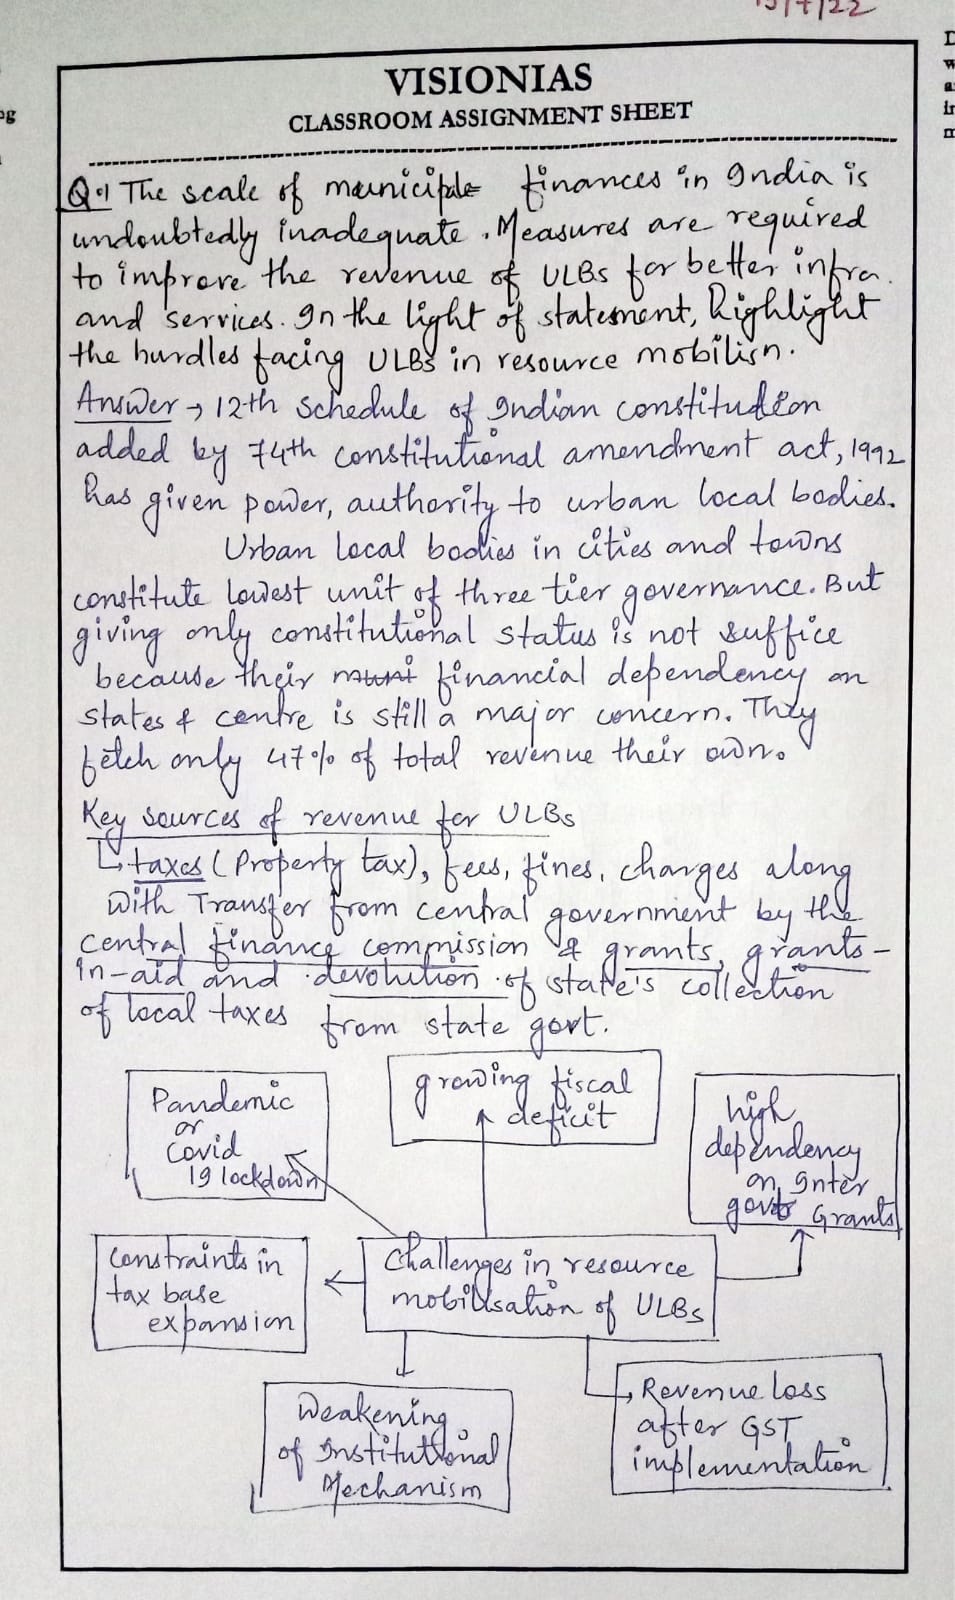 15/7/22
VISIONIAS
CLASSROOM ASSIGNMENT SHEET
Q.1 The scale of municiple finances in India is
undoubtedly inadequate. Measures are required
to improve the revenue of ULBs for better infra.
and services. In the light of statement, highlight
the hurdles facing ULBs in resource mobilisn.
Answer → 12th schedule of Indian constitution
added by 74th constitutional amendment act, 1992
has given power, authority to urban local bodies.
Urban local bodies in cities and towns
constitute lowest unit of three tier governance. But
giving only constitutional status is not suffice
because their financial dependency on
states & centre is still a major concern. They
fetch only 47% of total revenue their own.
Key sources of revenue for ULBs
↳ taxes (Property tax), fees, fines, charges along
with Transfer from central government by the
central finance commission & grants, grants-
in-aid and devolution of state's collection
of local taxes from state govt.
Pandemic
or
Covid
19 lockdown
growing fiscal
deficit
high
dependency
on Inter
govt Grants
Constraints in
tax base
expansion
Challenges in resource
mobilisation of ULBs
Weakening
of Institutional
Mechanism
Revenue loss
after GST
implementation